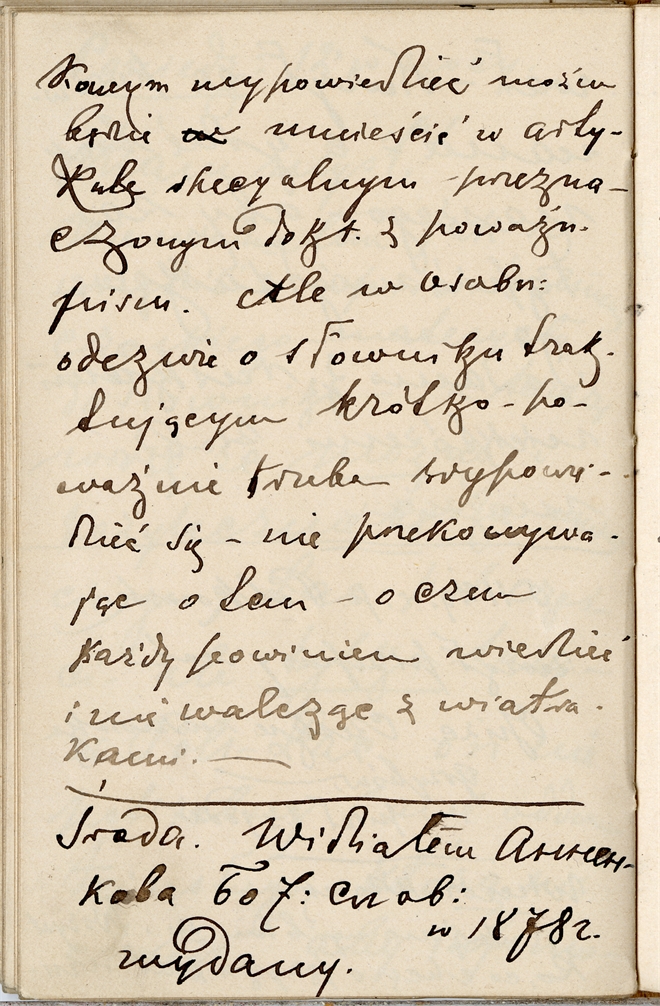 wypowiedzieć można
będzie umieścić w arty-
kule specyalnym przezna-
czonym dokt. z poważn.
pism. Ale w osobn:
odezwie o słowniku trak-
tującym krótko-po-
ważnie trzeba wypowie-
dzieć się – nie przekonywa-
jąc o tem – o czem
każdy powinien wiedzieć
i nie walcząc z wiatra-
kami. —
Środa. Widziałem Аннен-
кова бот: слов:
w 1878 r.
wydany.